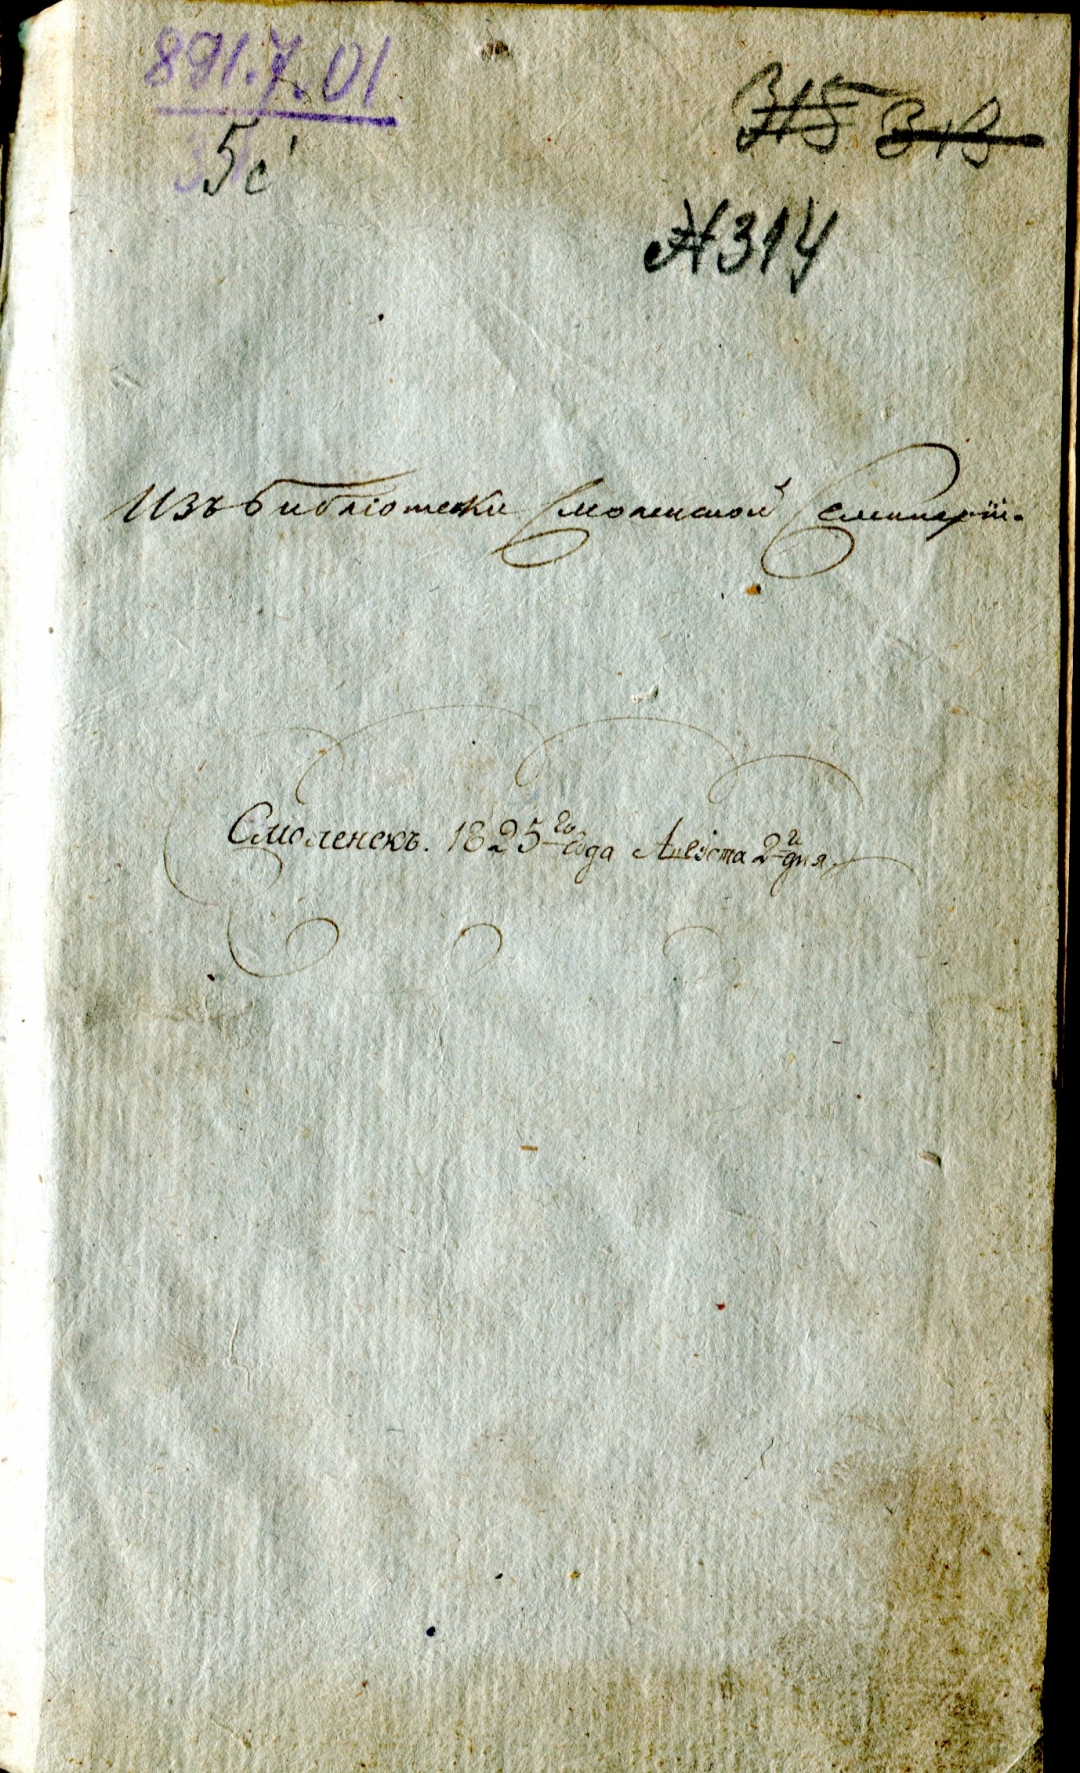 891.7.01
5c
315 313
№314
Изъ библіотеки Смоленской Семинаріи.
Смоленскъ. 1825го года Августа 2го дня.